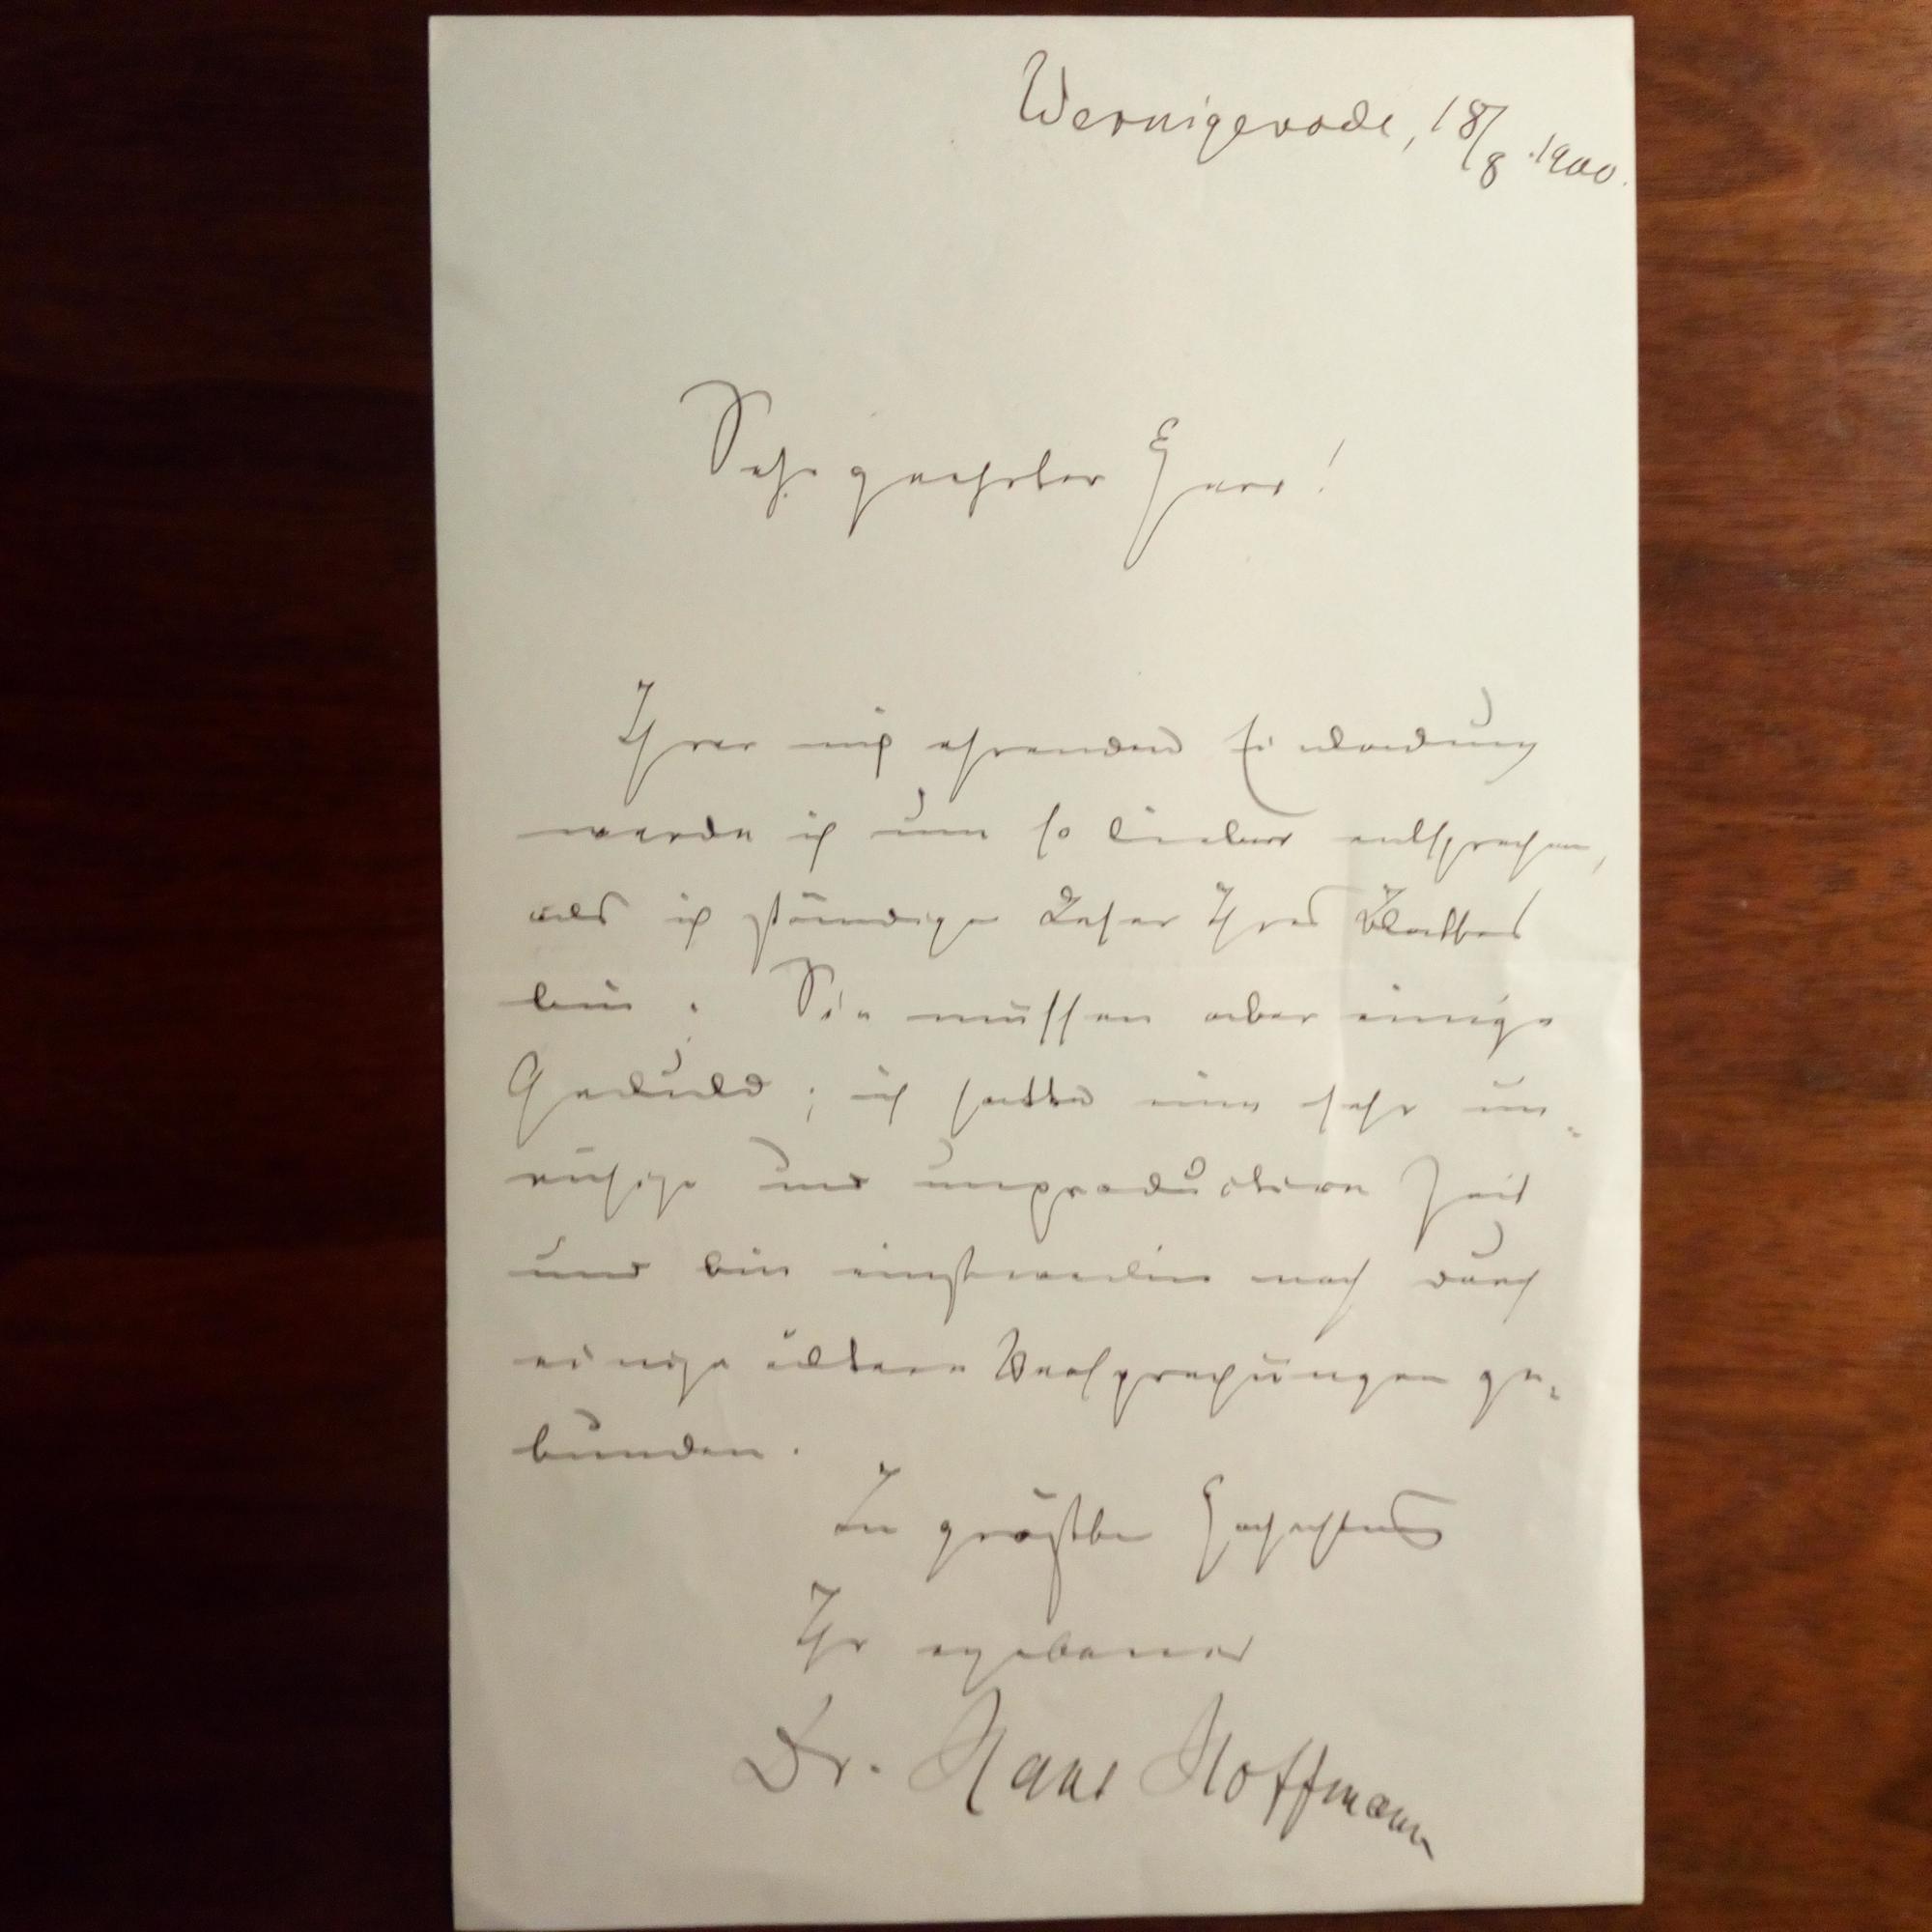 Wernigerode, 18/8.1900.
Sehr geehrter Herr!
Ihrer mich ehrenden Einladung
werde ich um so lieber entsprechen,
als ich ständiger Leser Ihres Blattes
bin. Sie müssen aber einige
Geduld; ich hatte eine sehr un-
ruhige und unproductive Zeit
und bin einstweilen noch durch
einige ältere Versprechungen ge-
bunden.
In größter Hochachtung
Ihr ergebener
Dr. Hans Hoffmann